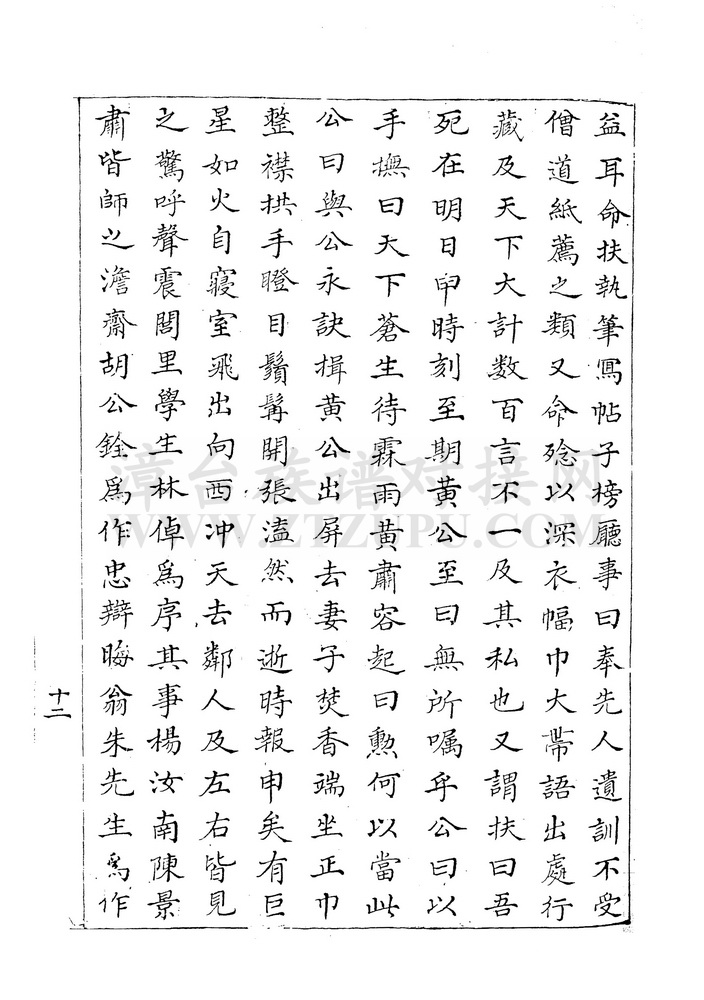 益耳命扶執筆寫帖子榜廳事曰奉先人遺訓不受
僧道紙薦之類又命殮以深衣幅巾大帶語出處行
藏及天下大計数百言不一及其私也又謂扶曰吾
死在明日申時刻至期黃公至曰無所囑乎公曰以
手撫曰天下蒼生待霖雨黃肅容起曰勲何以當此
公曰與公永訣揖黃公出屏去妻子焚香端坐正巾
整襟拱手瞪目鬚髯開張溘然而逝時報申矣有巨
星如火自寢室飛出向西冲天去鄰人及左右皆見
之驚呼聲震閭里學生林倬爲序其事楊汝南陳景
肅皆師之澹齋胡公銓爲作忠辯晦翁朱先生爲作
十二
漳台族谱对接网
WWW.ZTZUPU.COM